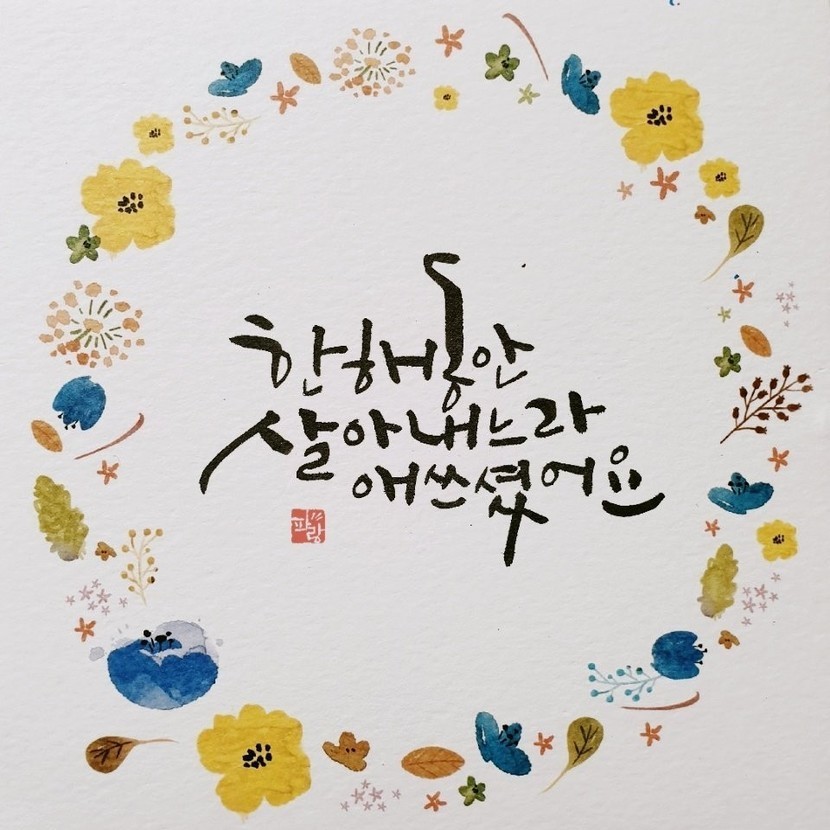 한해동안
살아내느라
애쓰셨어요
파랑